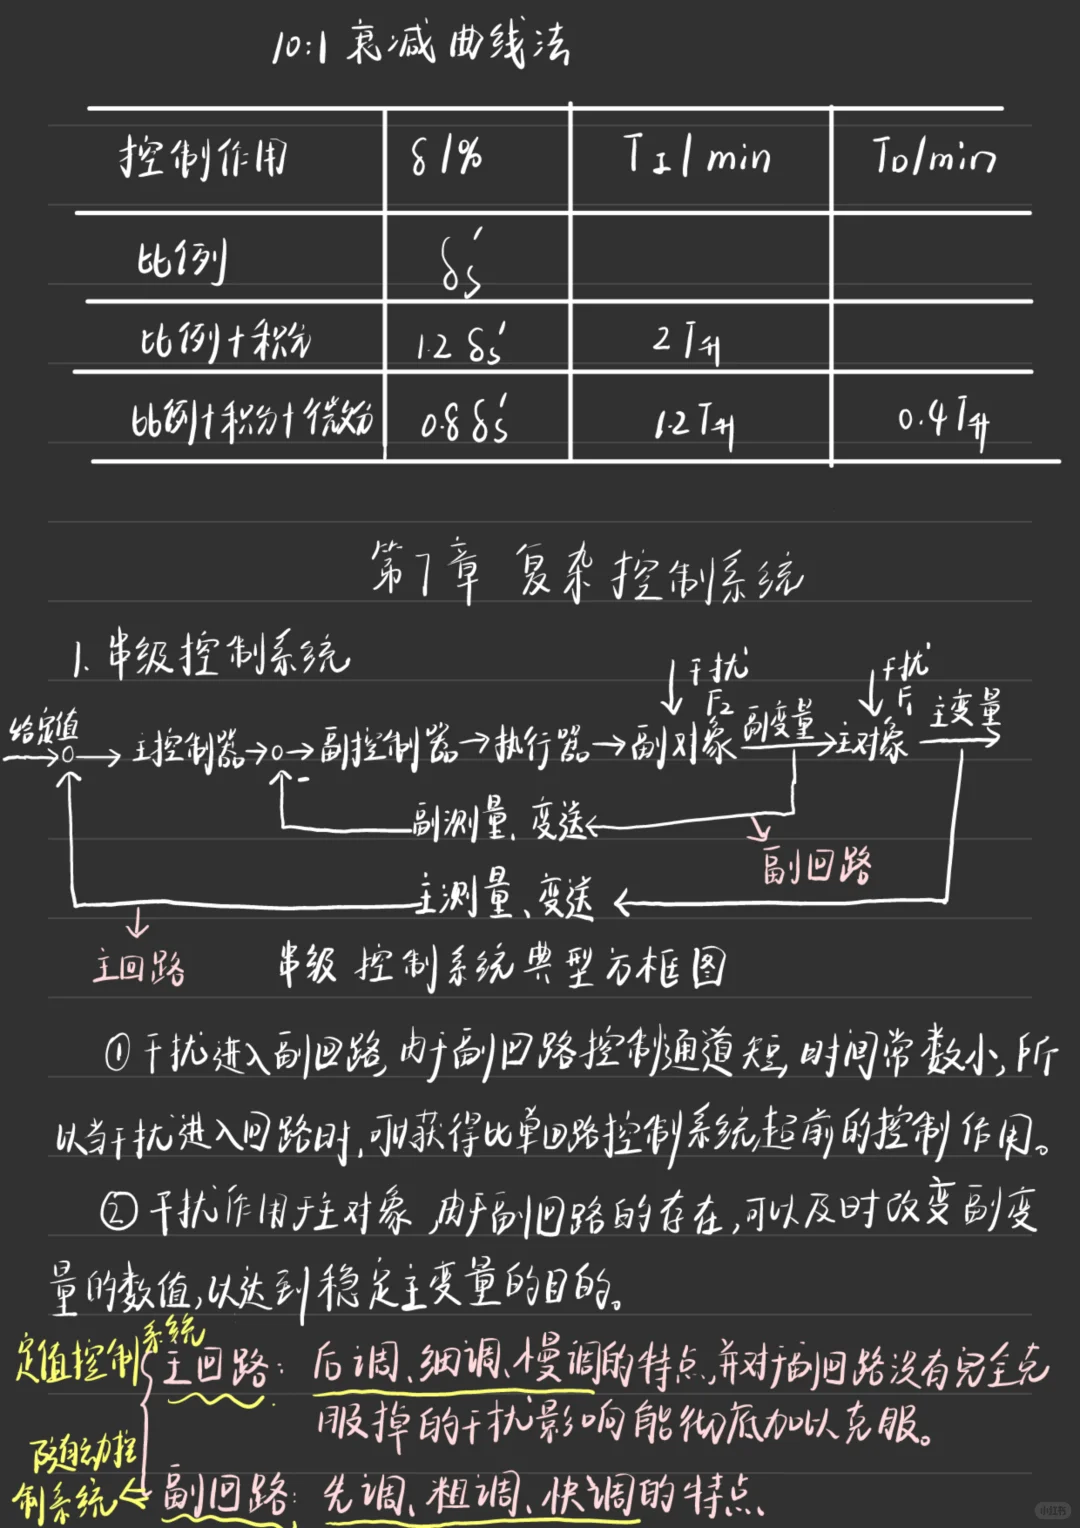 10:1 衰减曲线法
控制作用 δ/% TI/min TD/min
比例 δs′
比例+积分 1.2δs′ 2T升
比例+积分+微分 0.8δs′ 1.2T升 0.4T升
第7章 复杂控制系统
1. 串级控制系统
干扰 F2 干扰 F1
给定值 → 主控制器 → → 副控制器 → 执行器 → 副对象 副变量 → 主对象 主变量
-
副测量、变送
副回路
主测量、变送
主回路 串级控制系统典型方框图
①干扰进入副回路,由于副回路控制通道短,时间常数小,所
以当干扰进入回路时,可以获得比单回路控制系统超前的控制作用。
②干扰作用于主对象,由于副回路的存在,可以及时改变副变
量的数值,以达到稳定主变量的目的。
定值控制系统 主回路:后调、细调、慢调的特点,并对于副回路没有完全克
服掉的干扰影响能彻底加以克服。
随动控
制系统 副回路:先调、粗调、快调的特点.
小红书